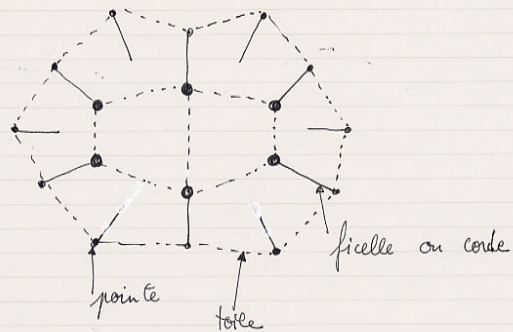 ficelle ou corde
pointe
toile